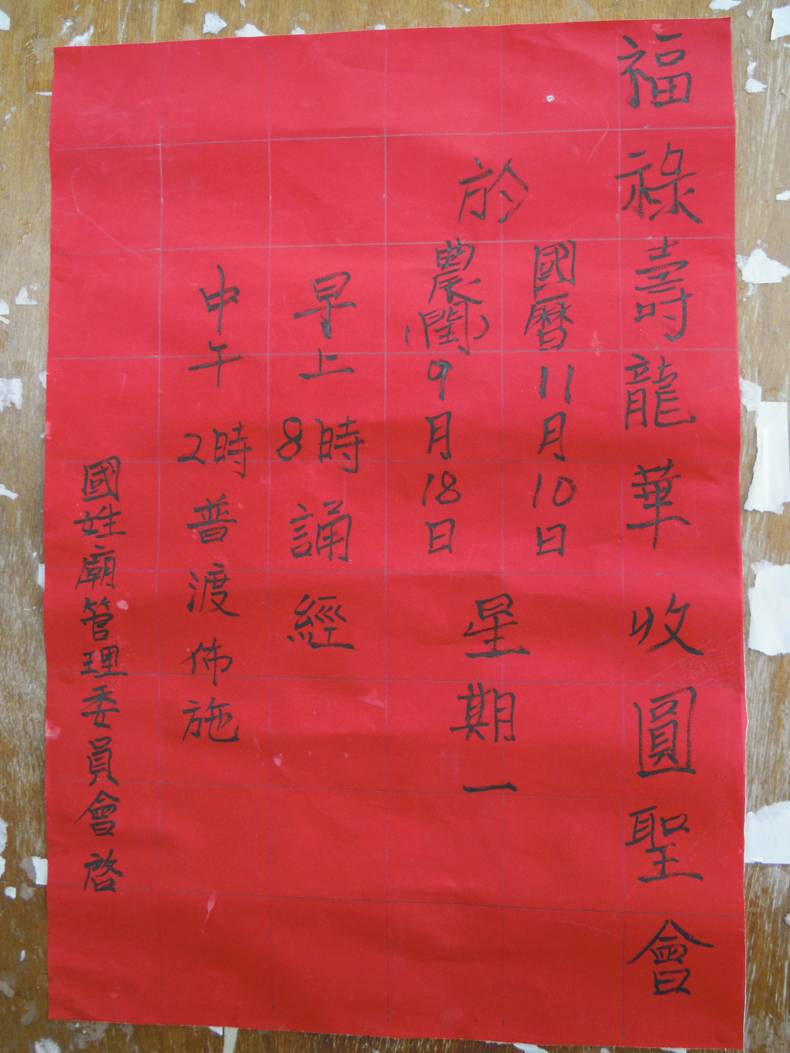 福祿壽龍華收圓聖會
於
國曆11月10日
農(閏)9月18日
星期一
早上8時誦經
中午2時普渡佈施
國姓廟管理委員會啓